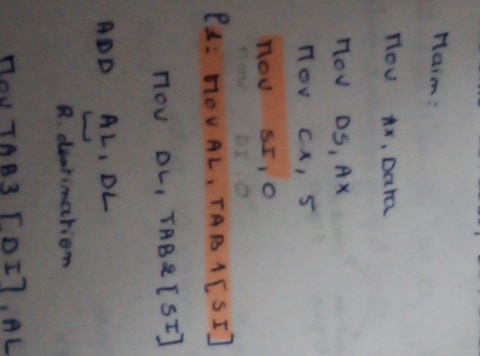 Main:
Mov AX, Data
Mov DS, AX
Mov CX, 5
Mov SI, 0
Mov DI, 0
P1: Mov AL, TAB1[SI]
Mov DL, TAB2[SI]
ADD AL, DL
R. destination
Mov TAB3[DI], AL